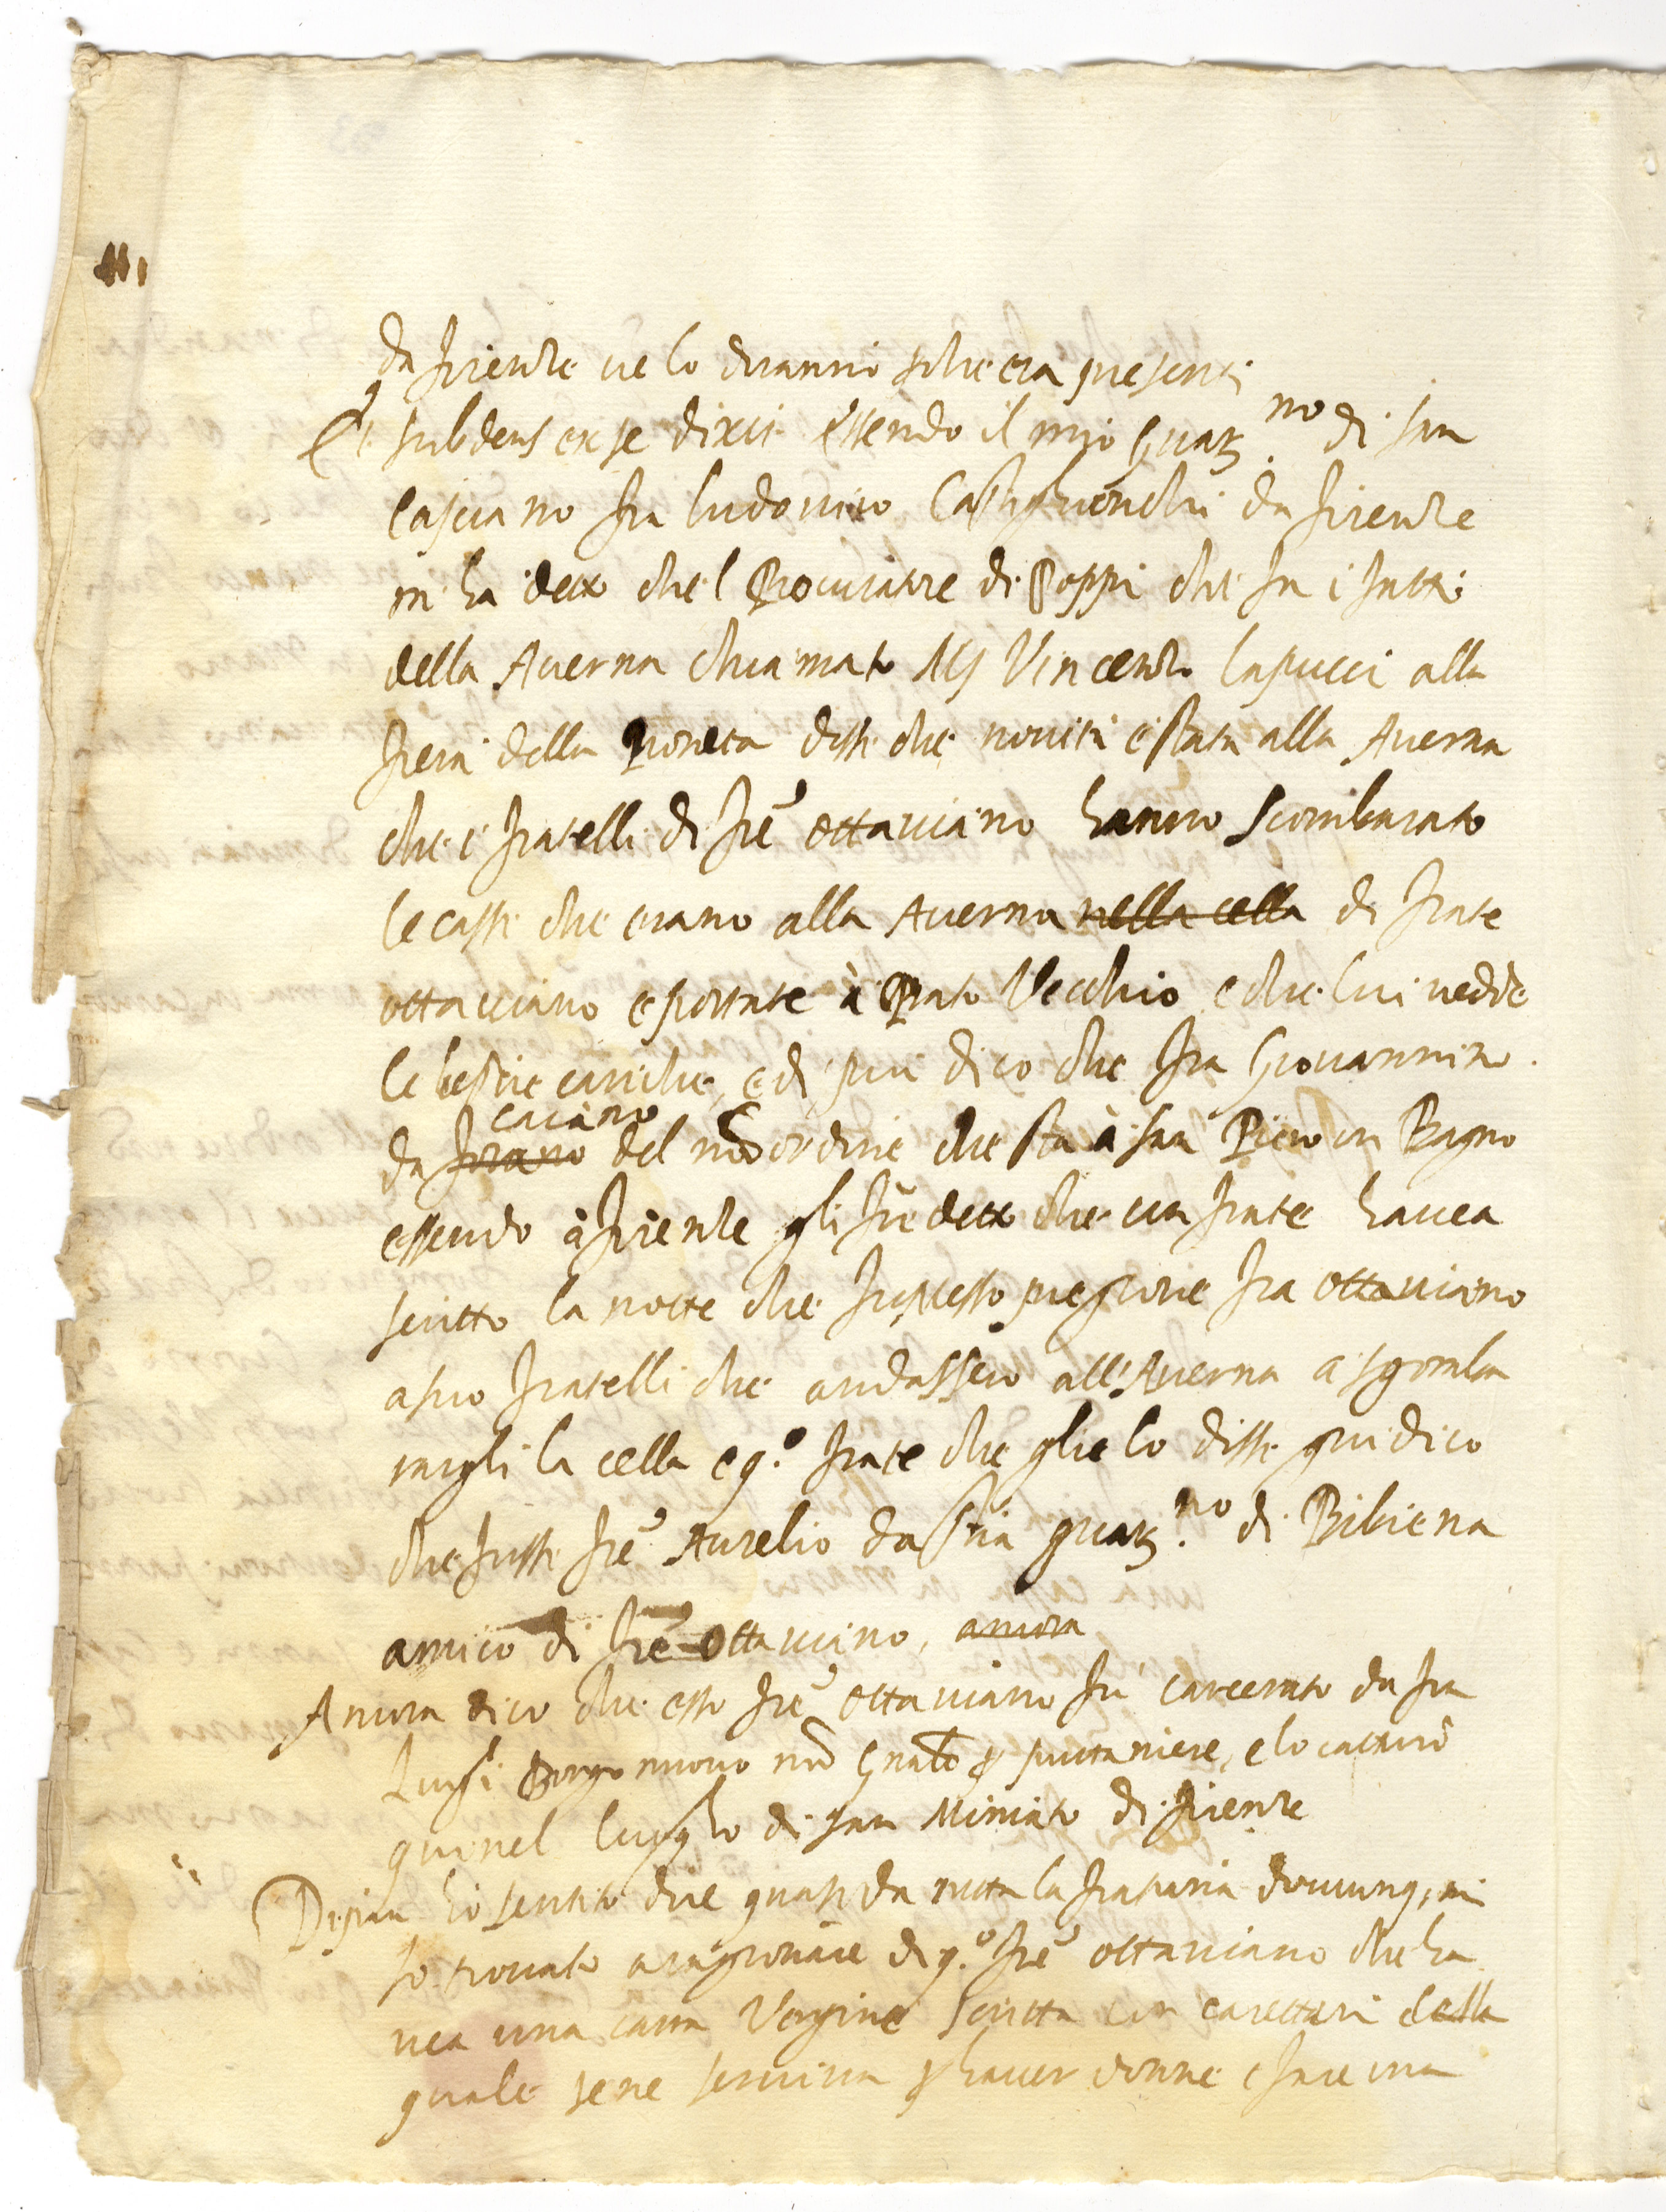 da firenze ve lo diranno che era presenti
Et subdens ex se dixit essendo il mio Guar.no di san
casciano fra ludovico da firenze
m ha detto che l Procuratore di Poppi che fa i fatti
della Averna chiamato Ms Vincentio lapucci alla
fiera della disse che novità è stata alla Averna
che i fratelli di fre ottaviano hanno scombarato
le casse che erano alla Averna nella cella di frate
ottaviano e portate à Prato Vecchio e che lui vedde
le bestie cariche, e di piu dico che fra Giovannino
caiano
da del nro ordine che sta à san Piero in Bagno
essendo à firenze gli fu detto che un frate havea
scritto la notte che fu messo pregione fra ottaviano
a suo fratelli che andassero all'Averna a sgombra
rargli la cella e q.o frate che glie lo disse qui dico
che fusse fre Aurelio da stia guar.no di Bibiena
amico di fre ottaviano, ancora
Ancora dico che esso fre ottaviano fu carcerato da fra
Luigi Borgo nuovo nro p puttaniere, e lo catturò
qui nel luogho di san Miniato di firenze
Di piu hò sentito dire quasi da tutta la frataria dovunq, mi
so trovato a ragionare di q.o fre ottaviano che ha
vea una carta Vergine scritta con carettari della
quale se ne serviva p haver donne e fare una